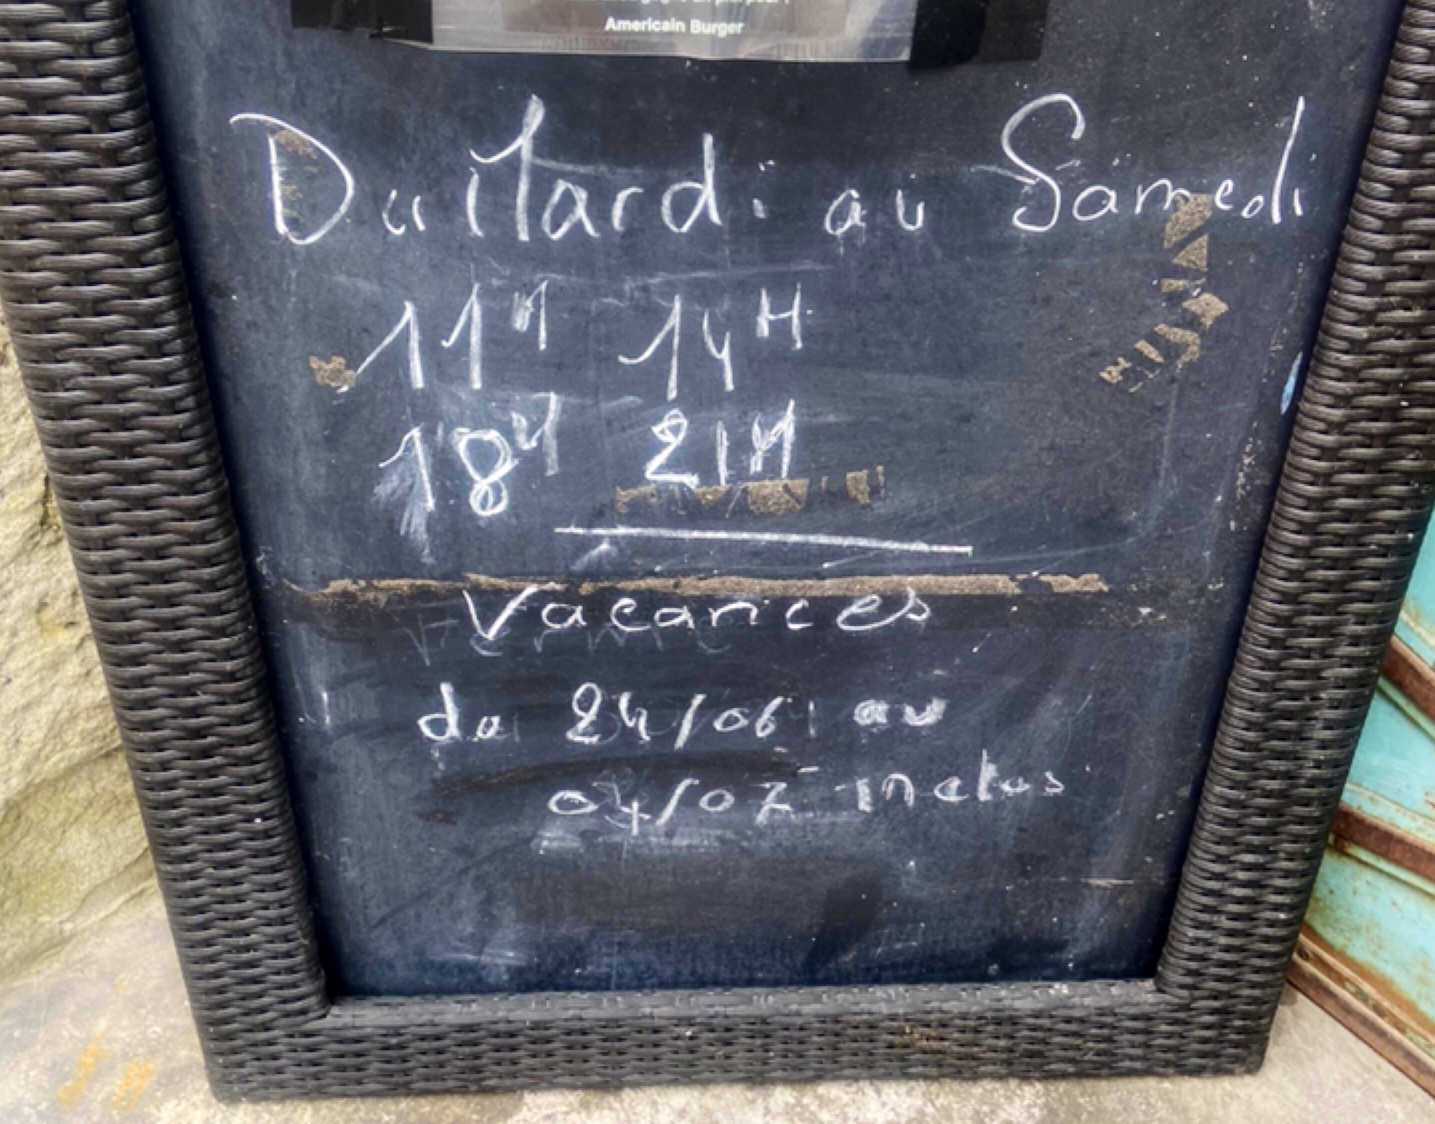 Americain Burger
Du Mardi au Samedi
11H 14H
18H 21H
Vacances
du 24/06 au
04/07 inclus